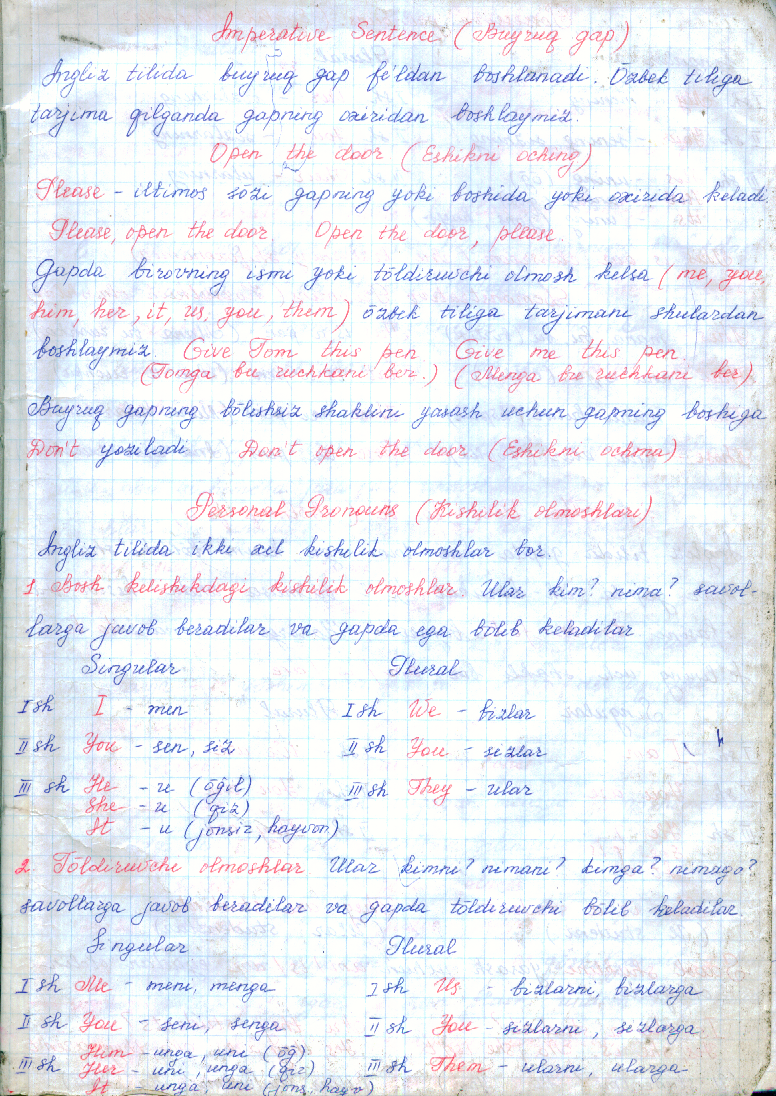 Imperative Sentence (Buyruq gap)
Ingliz tilida buyruq gap fe'ldan boshlanadi. Özbek tiliga
tarjima qilganda gapning oxiridan boshlaymiz.
Open the door (Eshikni oching)
Please - iltimos sözi gapning yoki boshida yoki oxirida keladi.
Please, open the door Open the door, please.
Gapda birovning ismi yoki töldiruvchi olmosh kelsa (me, you,
him, her, it, us, you, them) özbek tiliga tarjimani shulardan
boshlaymiz Give Tom this pen Give me this pen.
(Tomga bu ruchkani ber.) (Menga bu ruchkani ber)
Buyruq gapning bölishsiz shaklini yasash uchun gapning boshiga
Don't yoziladi Don't open the door (Eshikni ochma)
Personal Pronouns (Kishilik olmoshlari)
Ingliz tilida ikki xil kishilik olmoshlar bor.
1. Bosh kelishikdagi kishilik olmoshlar. Ular kim? nima? savol-
larga javob beradilar va gapda ega bölib keladilar
Singular Plural
I sh I - men I sh We - bizlar
II sh You - sen, siz II sh You - sizlar
III sh He - u (öğil) III sh They - ular
She - u (qiz)
It - u (jonsiz, hayvon)
2. Töldiruvchi olmoshlar Ular kimni? nimani? kimga? nimaga?
savollarga javob beradilar va gapda töldiruvchi bölib keladilar
Singular Plural
I sh Me - meni, menga I sh Us - bizlarni, bizlarga
II sh You - seni, senga II sh You - sizlarni, sizlarga
Him - unga, uni (öğ)
III sh Her - uni, unga (qiz) III sh Them - ularni, ularga
It - unga, uni (jons, hayv)